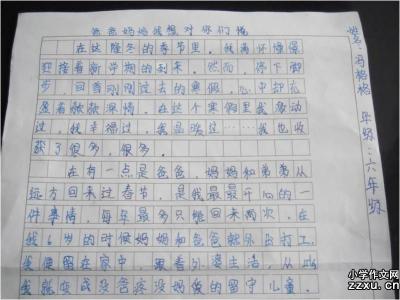 爸爸妈妈我想对你们说
在这隆冬的季节里，我满怀憧憬
迎接着新学期的到来。然而，停下脚
步，回首刚刚过去的寒假，心中却充
盈着脉脉深情。在这个寒假里我感动
过，我幸福过，我品味过……我也收
获了很多，很多。
在有一点是爸爸，妈妈和弟弟从
远方回来过春节，是我最最开心的一
件事情，每年最多只能回来两次，在
我6岁的时候妈妈和爸爸就外出打工，
我便留在家中，跟着外婆生活，从此
我就变成没爸疼没妈爱的留守儿童。
姓名：冯格格 年级：六年级
小学作文网
zzxu.cn